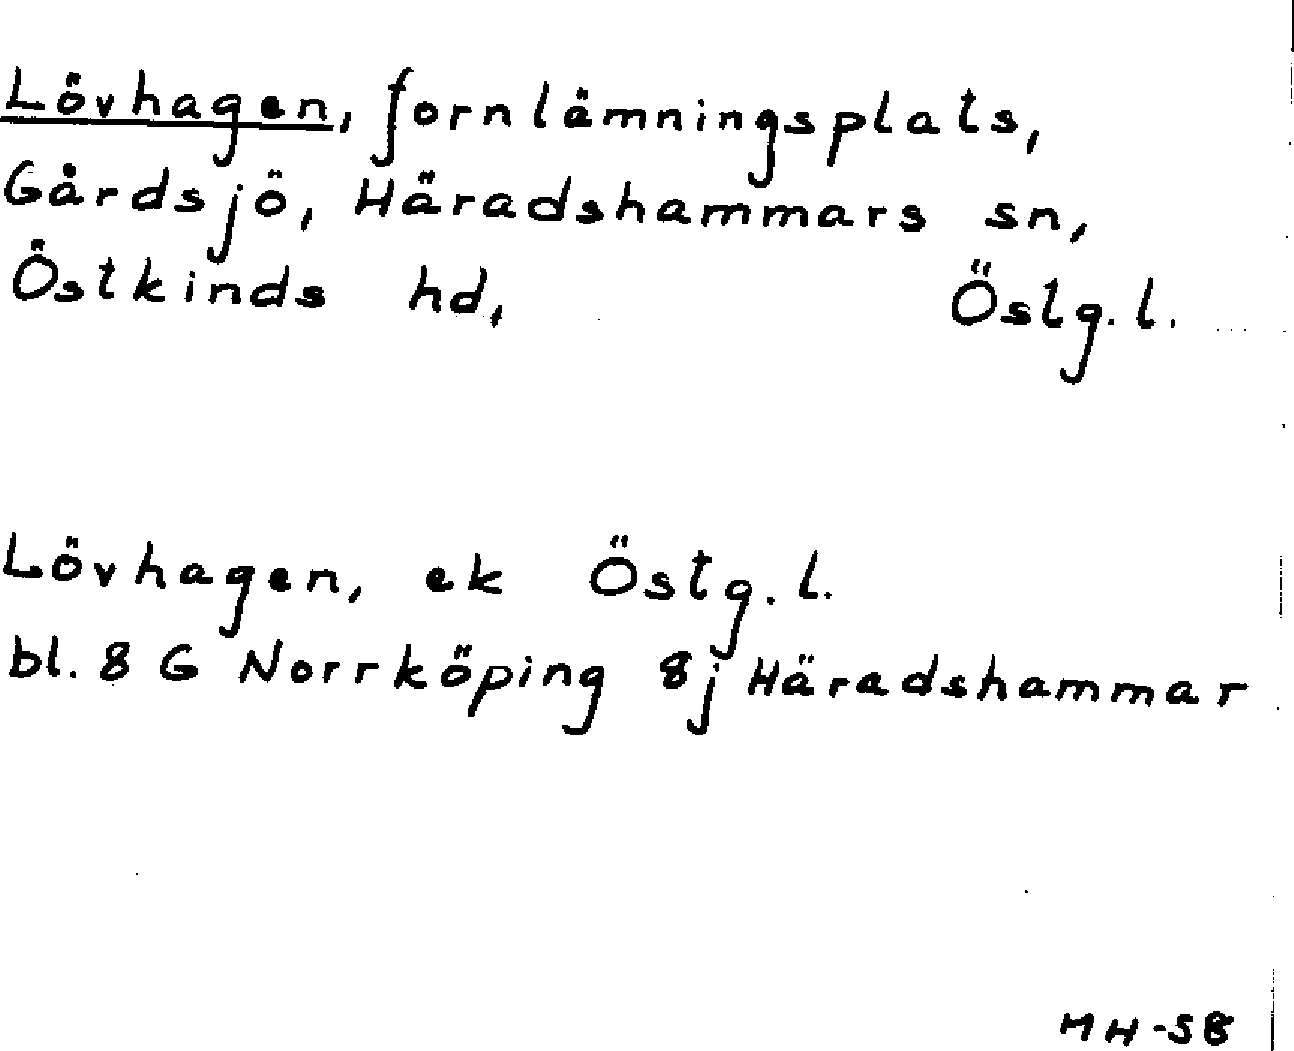 Lövhagen, fornlämningsplats,
Gårdsjö, Häradshammars sn,
Östkinds hd, Östg.l.
Lövhagen, ek Östg.l.
bl. 8 G Norrköping 8j Häradshammar
MH-SB